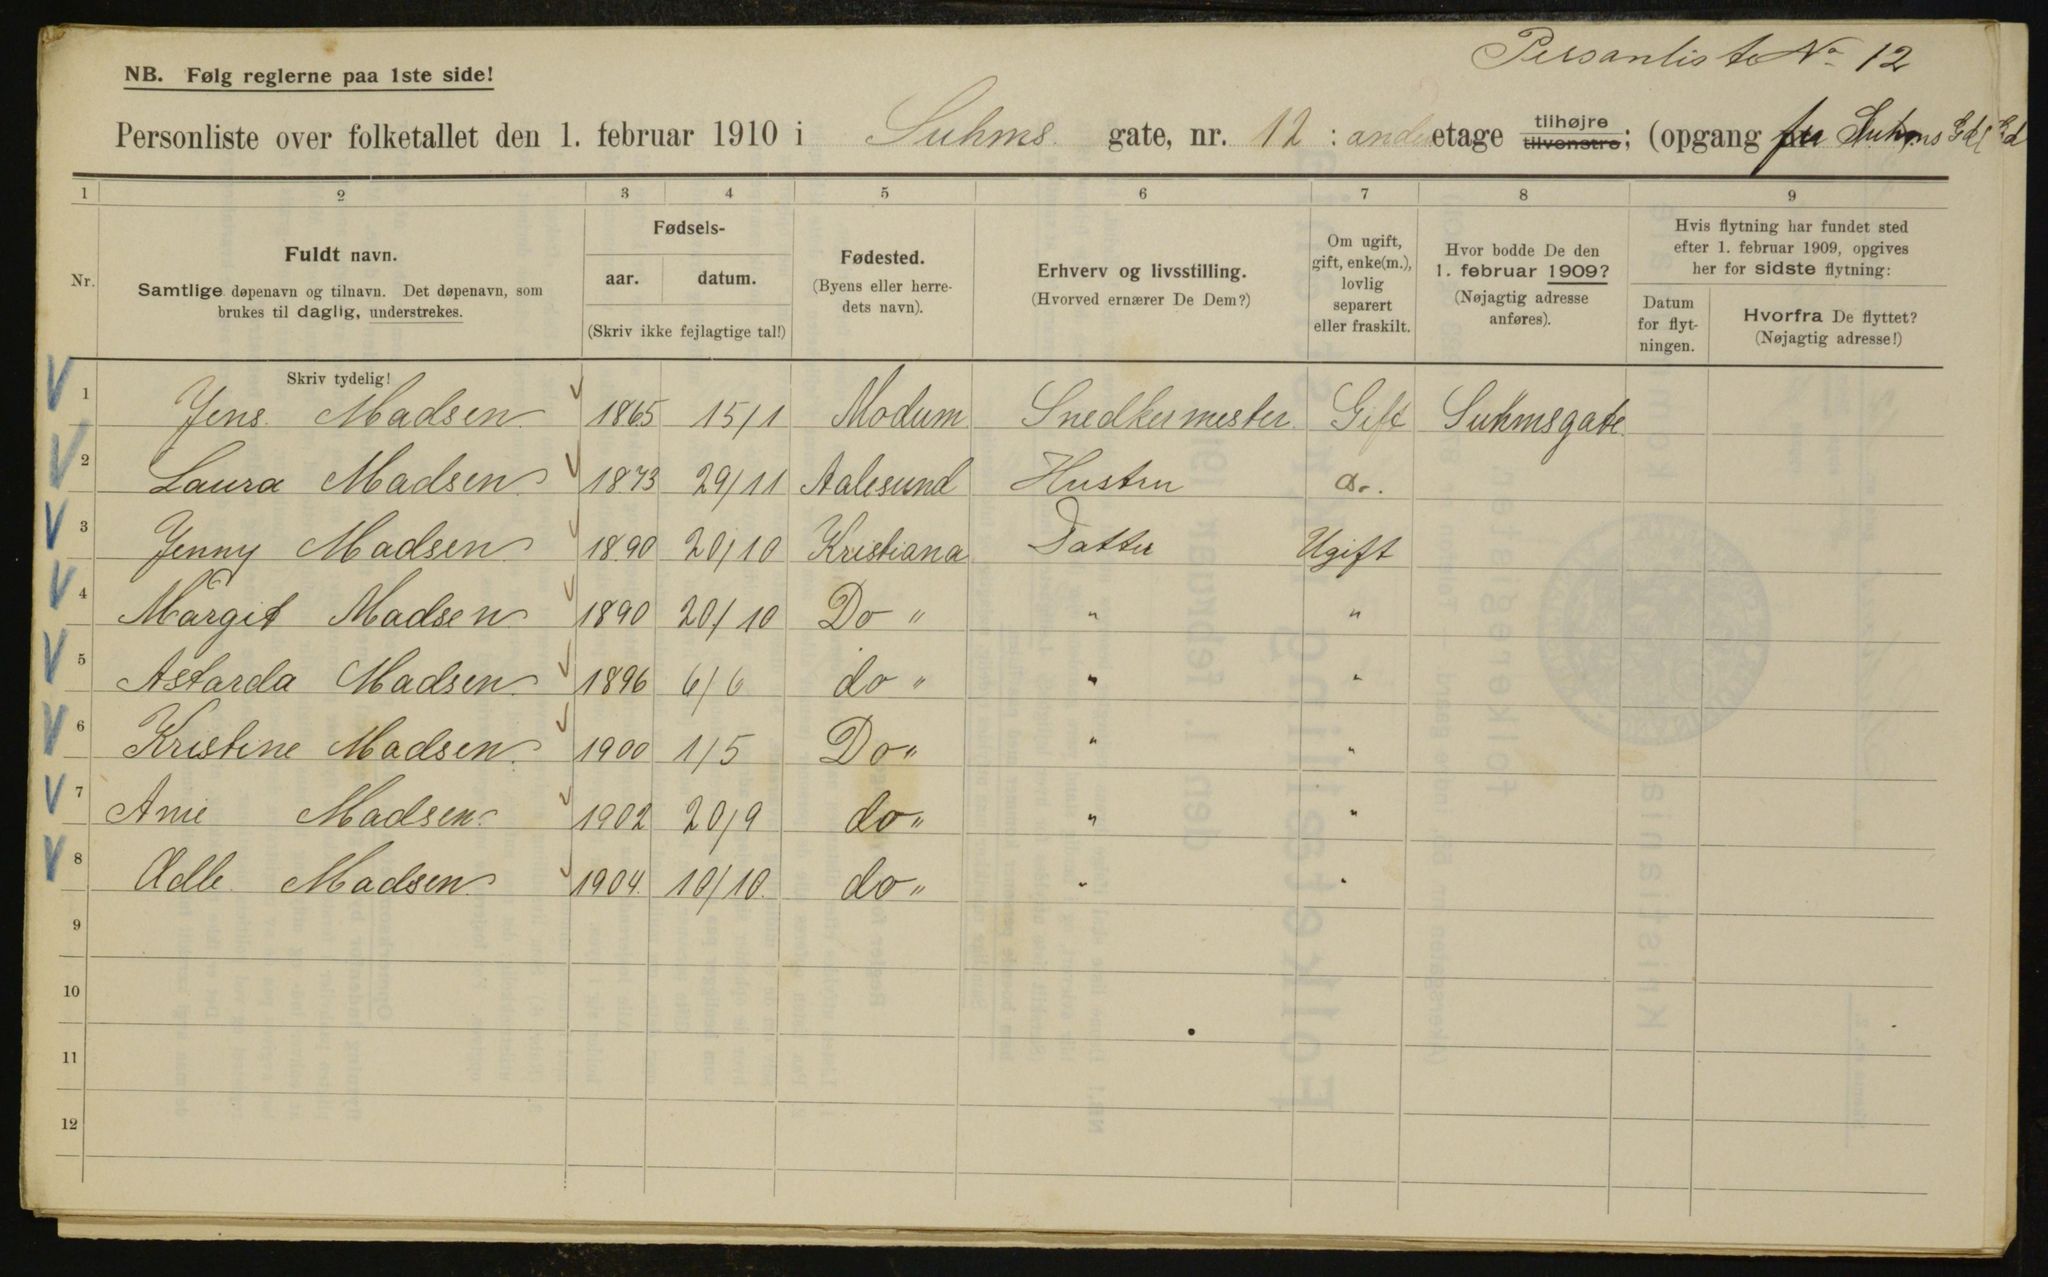 Personliste No 12
NB. Følg reglerne paa 1ste side!
Personliste over folketallet den 1. februar 1910 i Suhms gate, nr. 12 : anden etage tilhøjre tilvenstre; (opgang fra Suhms Gd
1 2 3 4 5 6 7 8 9
Nr.
Fuldt navn.
Samtlige døpenavn og tilnavn. Det døpenavn, som
brukes til daglig, understrekes.
Fødsels-
aar. datum.
(Skriv ikke fejlagtige tal!)
Fødested.
(Byens eller herre-
dets navn).
Erhverv og livsstilling.
(Hvorved ernærer De Dem?)
Om ugift,
gift, enke(m.),
lovlig
separert
eller fraskilt.
Hvor bodde De den
1. februar 1909?
(Nøjagtig adresse
anføres).
Hvis flytning har fundet sted
efter 1. februar 1909, opgives
her for sidste flytning:
Datum
for flyt-
ningen.
Hvorfra De flyttet?
(Nøjagtig adresse!)
Skriv tydelig!
1 Jens Madsen 1865 15/1 Modum Snedkermester Gift Suhmsgate
2 Laura Madsen 1873 29/11 Aalesund Hustru do.
3 Jenny Madsen 1890 20/10 Kristiana Datter Ugift
4 Margit Madsen 1890 20/10 Do " " "
5 Astarda Madsen 1896 6/6 do " " "
6 Kristine Madsen 1900 1/5 Do " " "
7 Anie Madsen 1902 20/9 do " " "
8 Ædle Madsen 1904 10/10 do " " "
9
10
11
12